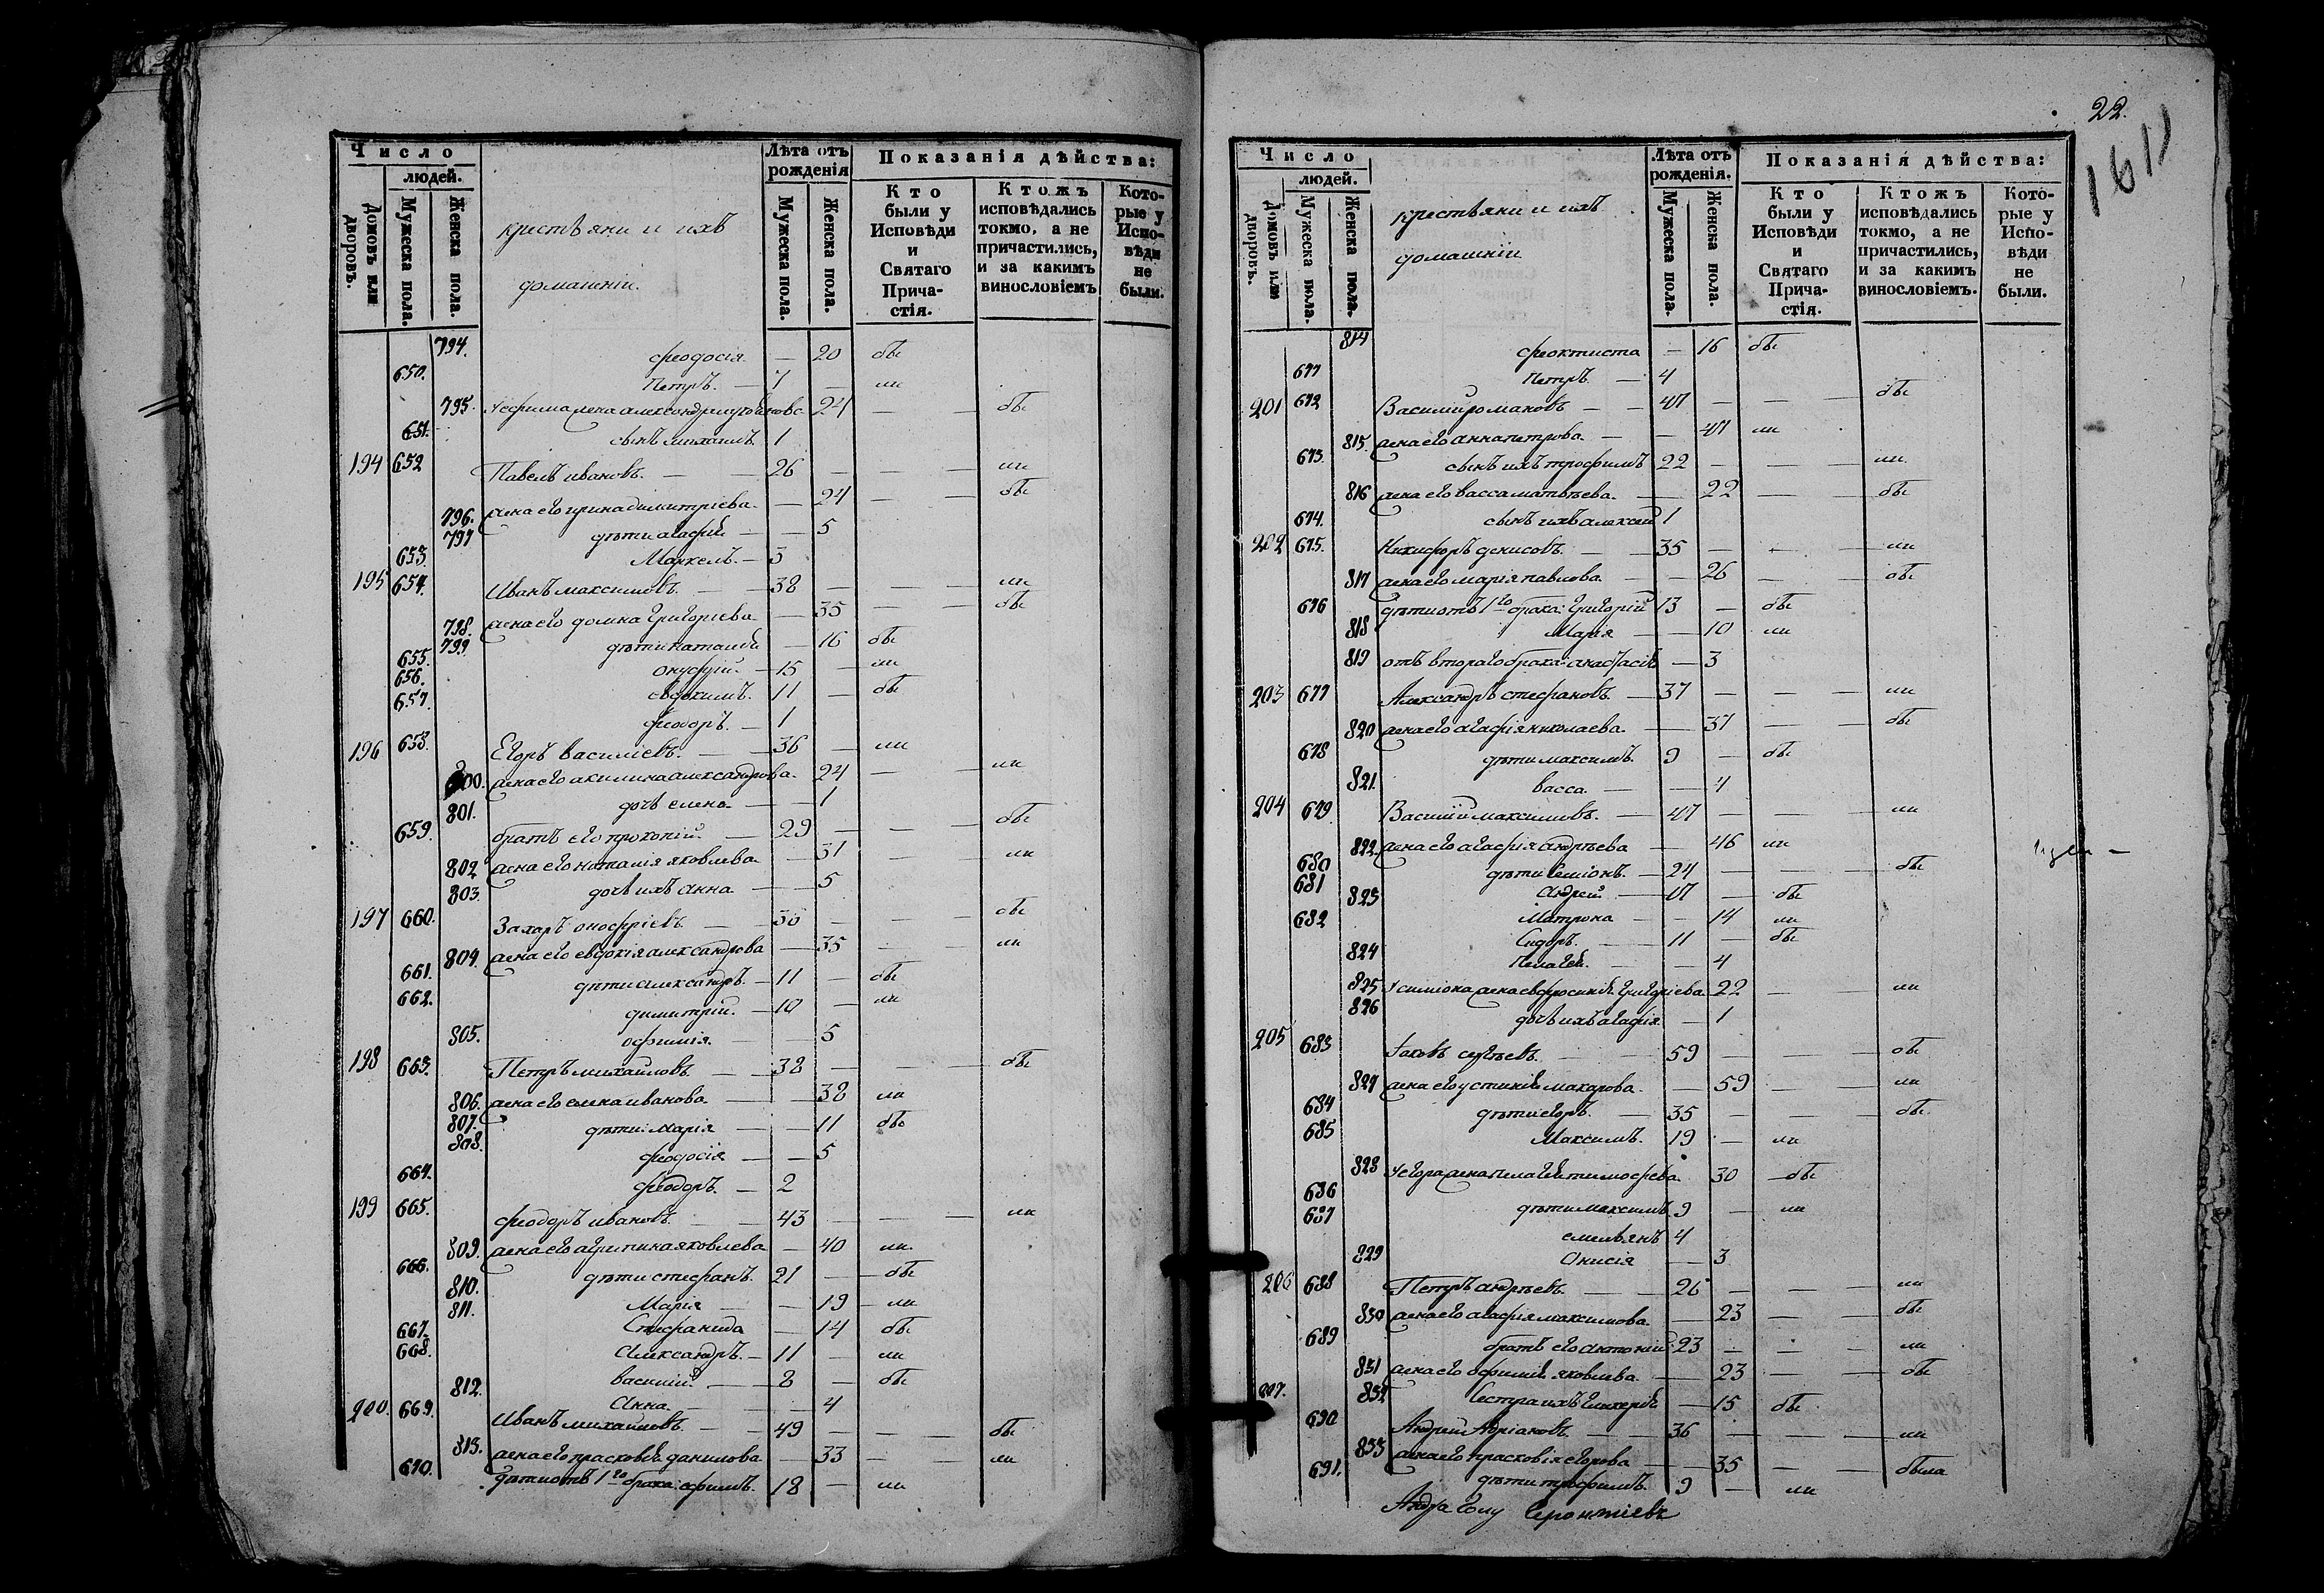 Число
людей.
Домовъ или дворовъ.
Мужеска пола.
Женска пола.
крестьяни и ихъ
домашніи.
Лѣта отъ рожденія
Мужеска пола.
Женска пола.
Показанія дѣйства:
Кто были у Исповѣди и Святаго Причастія.
Ктожъ исповѣдались токмо, а не причастились, и за какимъ винословіемъ
Которые у Исповѣди не были.
794. феодосія — 20 бы
650. Петръ. — 7 — ли
795. Уефима жена александра 24 — — бы
651. сынъ михаилъ 1
194 652 Павелъ ивановъ. — 26 — — — ли
796. жена его ирина димитріева — 24 — — бы
797 дѣти агафія — — 5
653. Маркелъ. — 3
195 654. Иванъ максимовъ. — 38 — — — ли
798. жена его домна григоріева — 35 — — бы
799. дѣти наталія — 16 бы
655. онуфрій — 15 — ли
656. евдокимъ. 11 — бы
657. феодоръ. — 1
196 658. Егоръ василіевъ. — 36 — ли
800. жена его акилина александрова — 24 — — ли
801. дочь елена — — 1
659. братъ его прокопій — 29 — — — бы
802 жена его наталія яковлева — 31 — — ли
803. дочь ихъ анна — — 5
197 660. Захаръ онофріевъ — 36 — — — бы
804. жена его евдокія александрова — 35 — — ли
661. дѣти александръ. — 11 — бы
662. димитрій — 10 — ли
805. ефимія. — — 5
198 663. Петръ михайловъ — 38 — — — бы
806. жена его елена иванова — — 38 ли
807. дѣти: марія — — 11 бы
808. феодосія — — 5
664. феодоръ. — 2
199 665. феодоръ ивановъ. — 43 — — — ли
809. жена его агрипина яковлева — 40 ли
666. дѣти стефанъ. 21 — бы
810. Марія — — 19 — ли
811. Стефанида — 14 бы
667. Александръ. — 11 — ли
668. василій — 8 — бы
812. Анна. — — 4
200. 669. Иванъ михайловъ. — 49 — — — бы
813. жена его прасковья данилова — 33 — ли
670. дѣти отъ 1го брака: ефимъ. 18 — ли
22.
Число
людей.
Домовъ или дворовъ.
Мужеска пола.
Женска пола.
крестьяни и ихъ
домашніи
Лѣта отъ рожденія.
Мужеска пола.
Женска пола.
Показанія дѣйства:
Кто были у Исповѣди и Святаго Причастія.
Ктожъ исповѣдались токмо, а не причастились, и за какимъ винословіемъ.
Которые у Исповѣди не были.
814 феоктиста — 16 бы
671 Петръ — 4
201 672 Василій романовъ — — 47 — — — бы
815. жена его анна петрова — — 47 ли
673. сынъ ихъ трофимъ 22 — — — ли
816 жена его васса матвѣева — 22 — бы
674. сынъ ихъ алексей 1
202 675. Никифоръ денисовъ — 35 — — — ли
817 жена его марія павлова — — 26 — бы
676 дѣти отъ 1го брака: григорій 13 — бы
818 Марія — — 10 ли
819 отъ втораго брака: анастасія — 3
203 677 Александръ стефановъ — 37 — — — ли
820 жена его агафія николаева — 37 — — бы
678 дѣти максимъ. 9 — бы
821. васса — — 4
204 679. Василій максимовъ. — 47 — — — ли
822 жена его агафія андрѣева — 46 ли
680 дѣти симіонъ. — 24 — — — бы
681 Андрей — 17 — бы
823 Матрона — — 14 ли
682 Сидоръ. — 11 — бы
824 Пелагея. — — 4
825 Усиміона жена евфросинія григоріева 22 — ли
826 дочь ихъ агафія — 1
205 683 Іаковъ сергѣевъ — 59 — — — бы
827 жена его устинія макарова — 59 — ли
684 дѣти егоръ. — 35 — — — бы
685 Максимъ. 19 — ли
828 Уегора жена пелагея тимофеева 30 — бы
686 дѣти максимъ 9 — ли
687 емельянъ 4
829 Анисія — 3
206 688 Петръ андрѣевъ — 26 — — — ли
830 жена его агафія максимова — 23 — — бы
689 братъ его антоній 23 — — — ли
831 жена его ефимія яковлева — 23 — — бы
832 Сестра ихъ гликерія — 15 бы
207. 690 Андрей Адріановъ — 36 — — — ли
833 жена его прасковія егорова — 35 — — была
691. дѣти трофимъ. 9 — ли